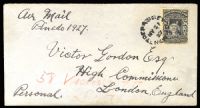 Air Mail
Pinedo 1927.
Victor Gordon Esq
High Commissioner
Personal.
London, England